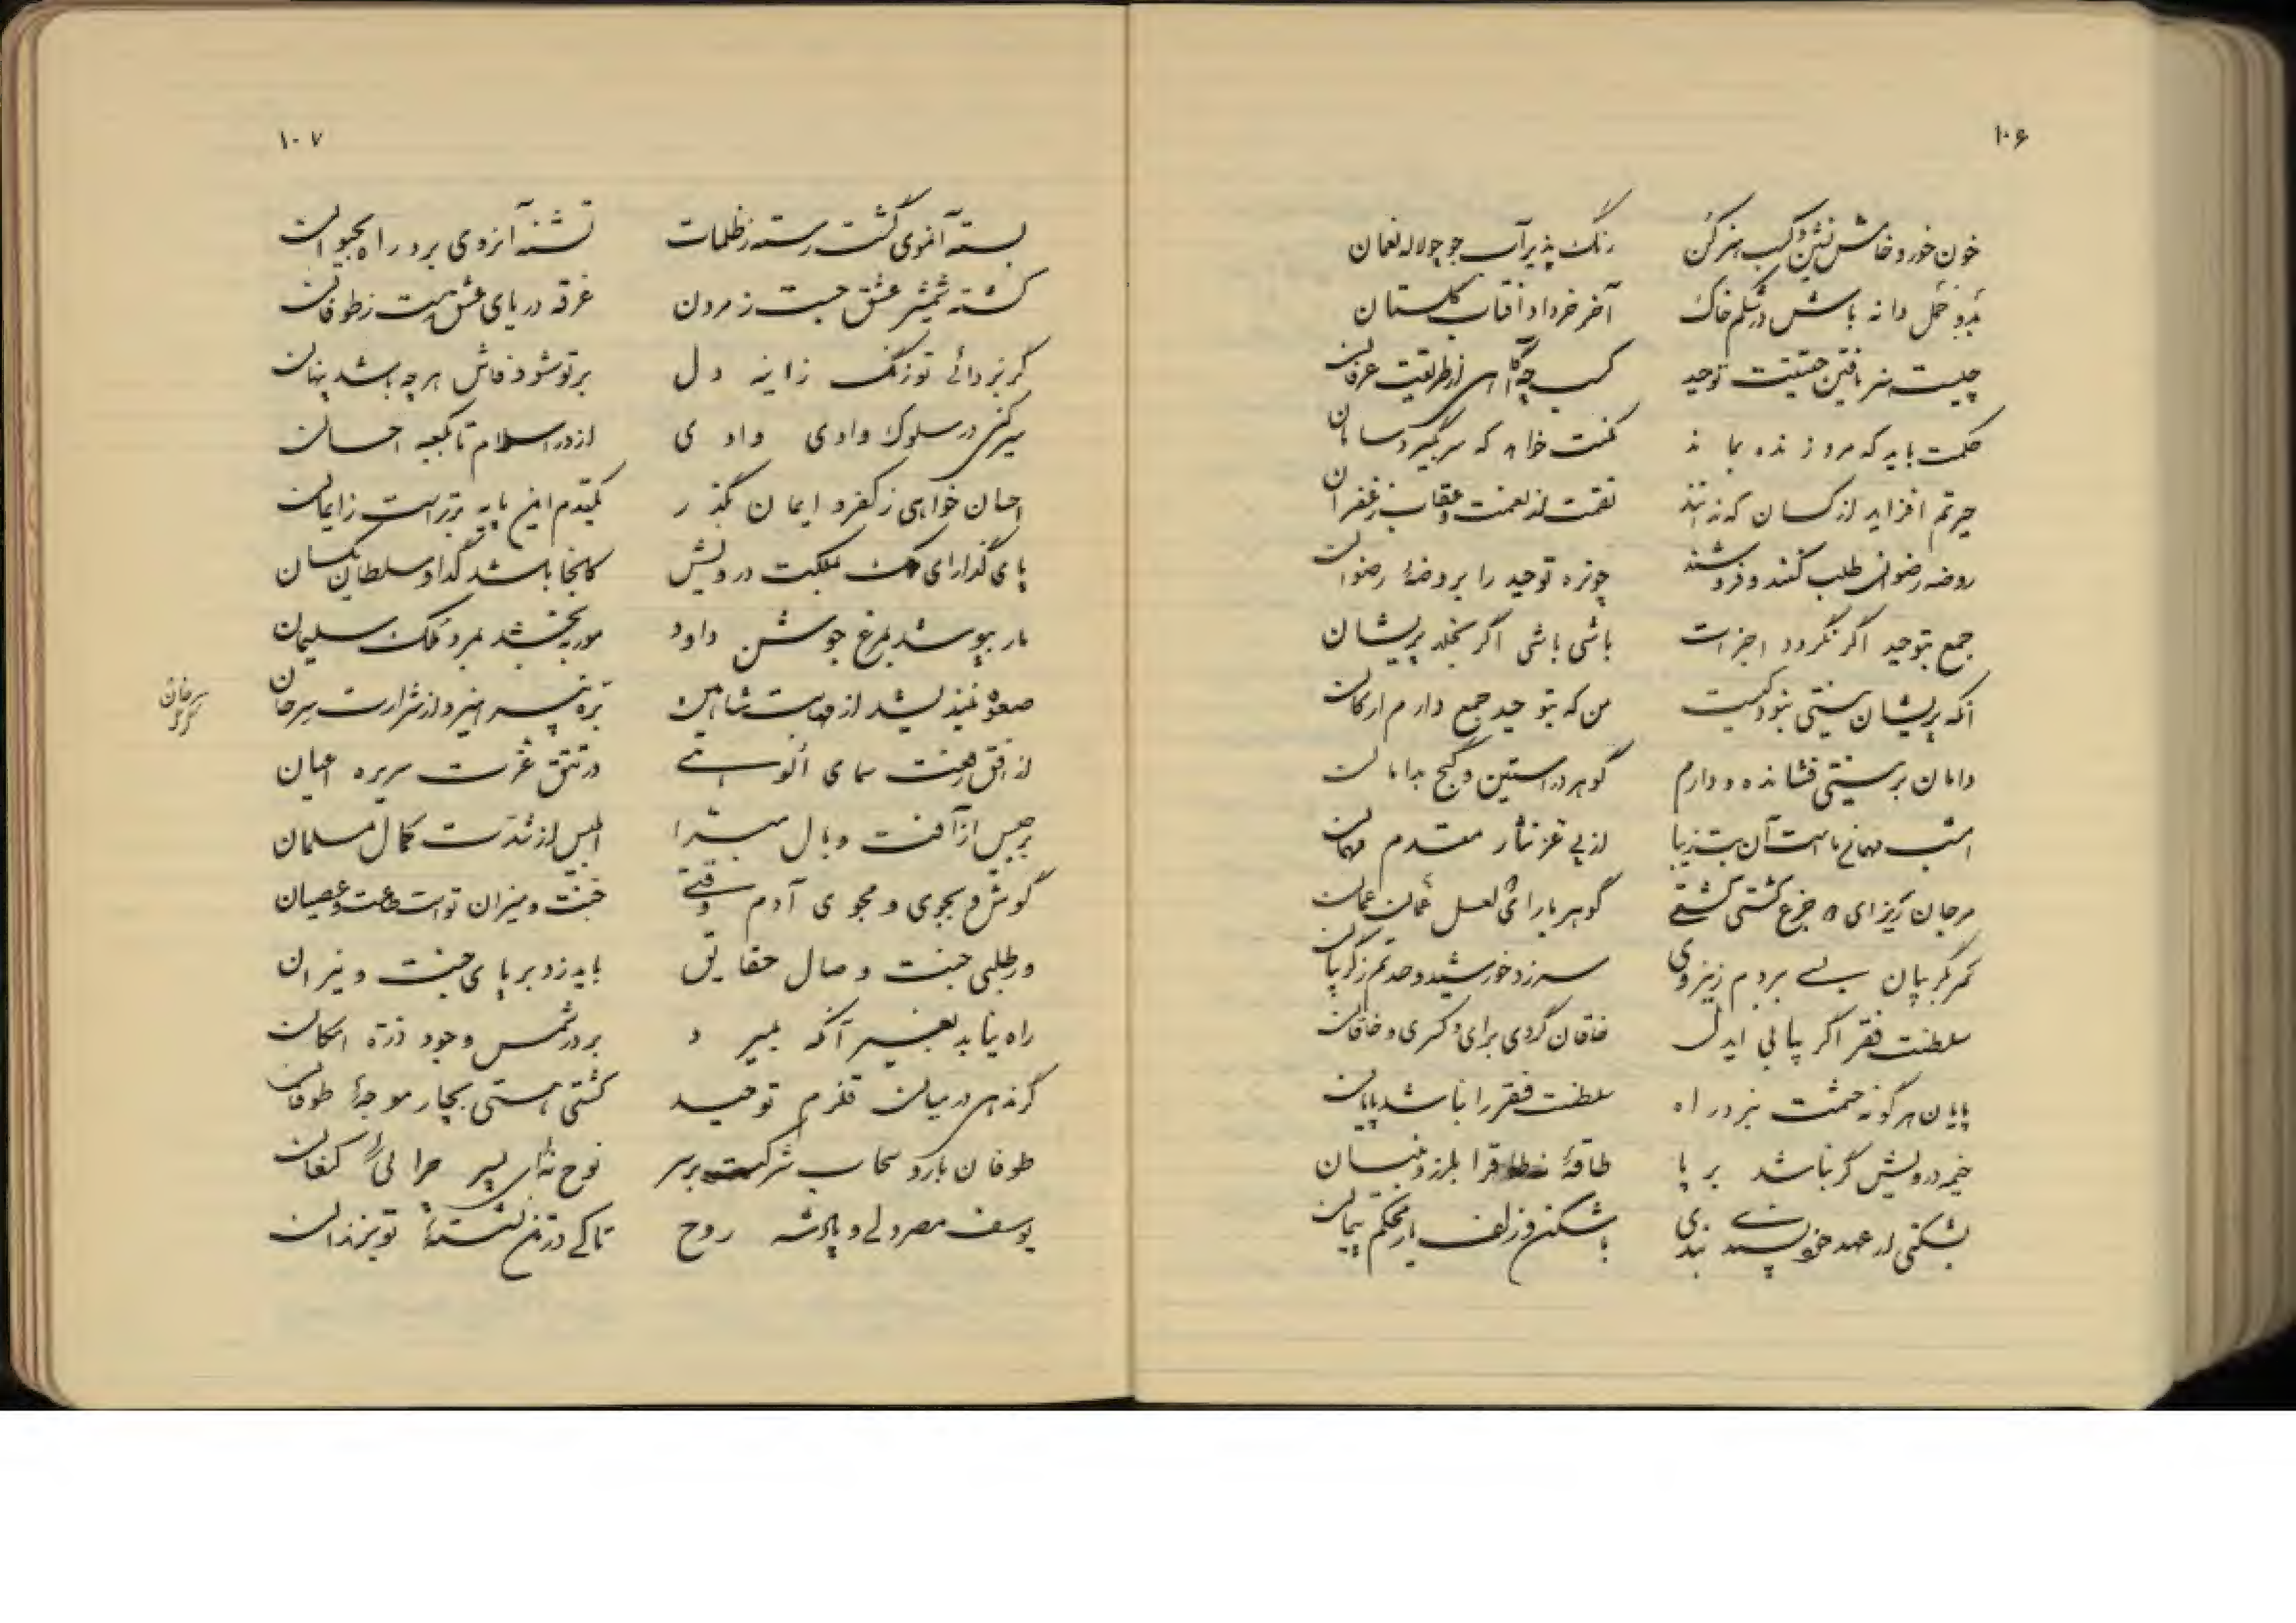 ۱۰۶
خون خور و خامش نشین و کسب هنر کن رنگ پذیر آب جو چو لاله نعمان
بذر و خمل دانه باش در شکم خاک آخر خرداد آفتاب گلستان
چیست هنر یافتن حقیقت توحید کسب چه آگاهی از طریقت عرفان
حکمت باید که مرد زنده بماند مکنت خواهد که سر بگیرد سامان
حیرتم افزاید از کسان که ندانند نقمت از نعمت و عقاب ز غفران
روضه رضوان طلب کنند و فروشند حوزه توحید را بروضهٔ رضوان
جمع بتوحید اگر نگردد اجزات باشی باشی اگر بخلد پریشان
آنکه پریشان نیستی نبود کیست من که بتوحید جمع دارم ارکان
دامان بر نیستی فشانده و دارم گوهر در آستین و گنج بدامان
امشب مهمان ماست آن بت زیبا از پی عز نثار مقدم مهمان
مرجان ریز ای جزع کشتی کشتی گوهر بار ای لعل عمان عمان
سر بگریبان بسی بردم زین روی سر زد خورشید و صد قمر ز گریبان
سلطنت فقر اگر بیابی ایدل خاقان گردی برای و کسری و خاقان
پایان هر گونه حشمت نبرد راه سلطنت فقر را نباشد پایان
خیمه درویش گر نباشد بر پا طاقهٔ را بلرزد بنیان
بشکنی ار عهد خویش بندی باشکن زلف یار محکم پیمان
۱۰۷
بسته آنموی گشت رسته ز ظلمات تشنه آنروی برد راه بحیوان
کشته شمشیر عشق جست ز مردن غرقه دریای عشق رست ز طوفان
گر بزدائی تو زنگ زاینه دل بر تو شود فاش هر چه باشد پنهان
سیر کنی در سلوک وادی وادی از در اسلام تا بکعبه احسان
احسان خواهی ز کفر و ایمان بگذر یکقدم این پایه برتر است ز ایمان
پای گذار ای ملک بملکت درویش کانجا باشد گدا و سلطان یکسان
مار بپوشد بمرغ جوشن داود مور ببخشد بمرد ملک سلیمان
صعوه نیندیشد از مهابت شاهین بره نپرهیزد از شرارت سرحان
سرحان گرگ
از افق رفعت سمای الوهی در تتق عزت سریره اعیان
برجیس از آفت وبال مبرا ابلیس از شدت کمال مسلمان
گوش و بجوی و مجوی آدم وقتی جنت و میزان تو است طاعت و عصیان
ور طلبی جنت وصال حقایق باید زد بر پای جنت و نیران
راه نیابد بغیر آنکه بمیرد بر در شمس وجود ذرهٔ امکان
گر ندهی در میان قلزم توحید کشتی هستی بچار موجهٔ طوفان
طوفان بارد سحاب شرکت بر سر نوح نه‌ای پسر چرا پی کنعان
یوسف مصر دلی و پادشه روح تا کی در تن نشسته‌ای تو بزندان